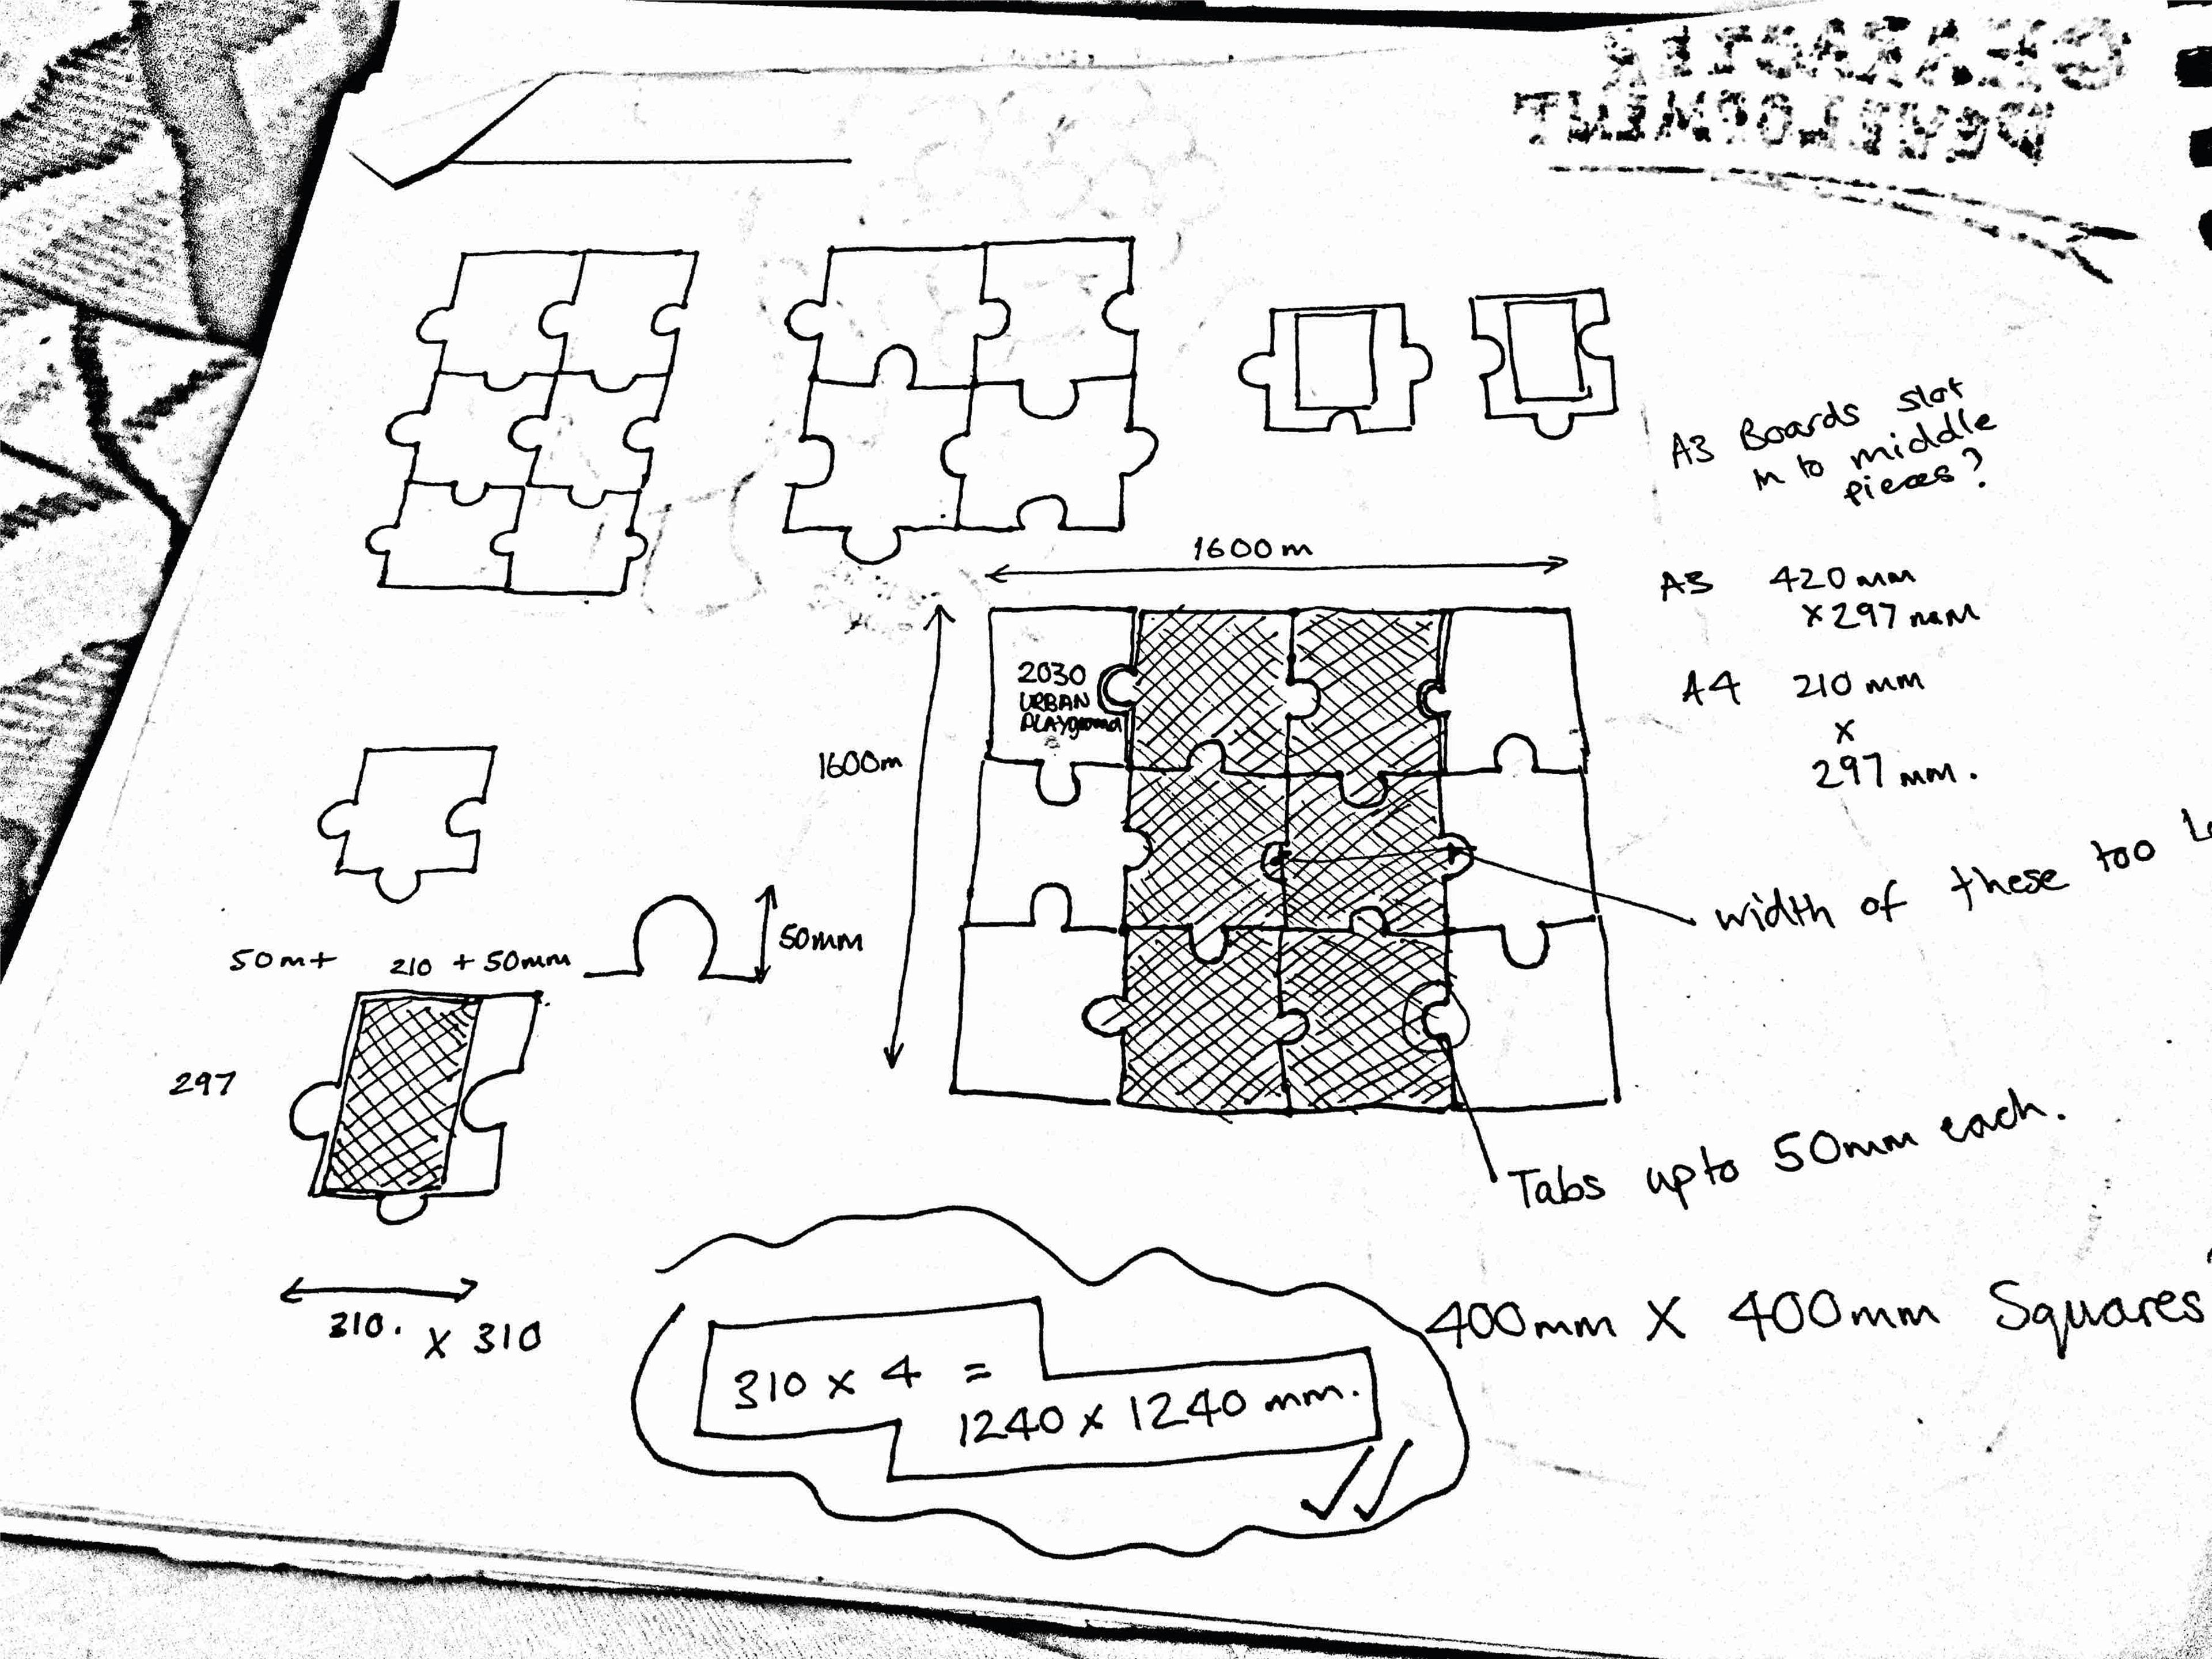 CHARACTER
DEVELOPMENT
A3 Boards slot
in to middle
pieces?
1600m
A3 420mm
x297mm
2030
URBAN
PLAYground
A4 210mm
x
297mm.
1600m
width of these too
50m+ 210 + 50mm
50mm
297
Tabs upto 50mm each.
310. x 310
400mm X 400mm Squares
310 x 4 =
1240 x 1240 mm.